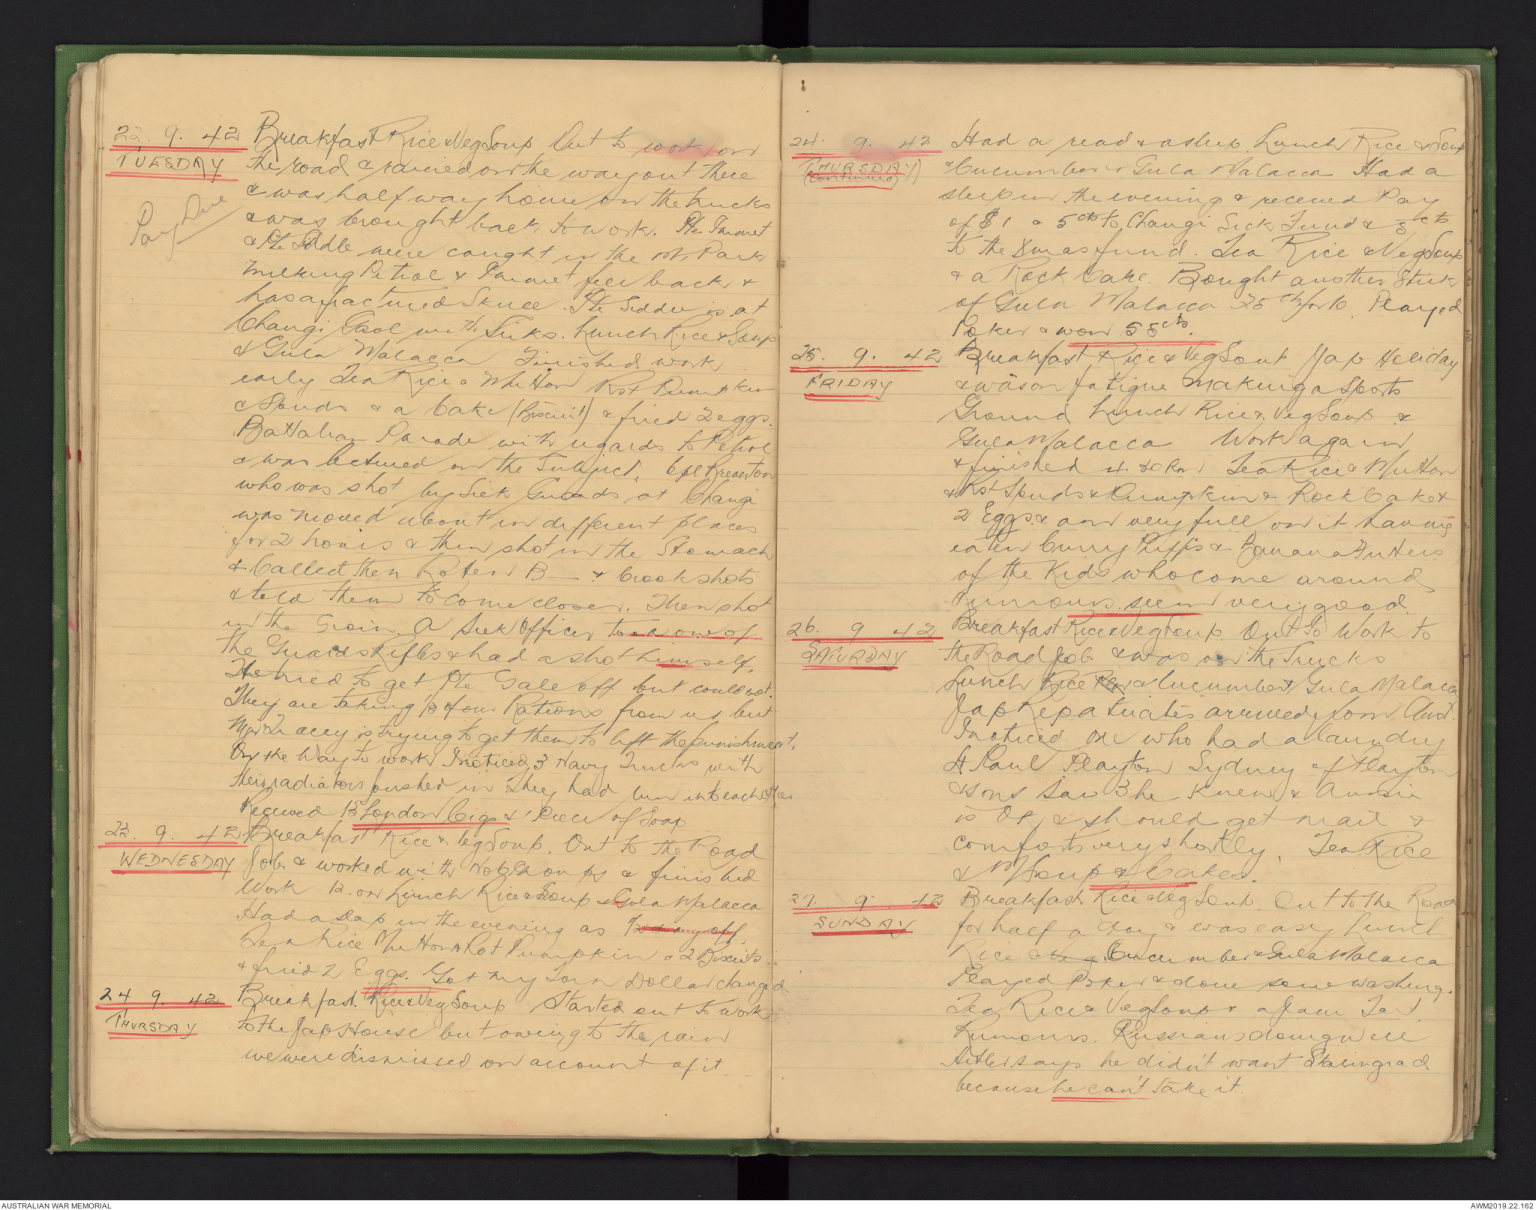 22. 9. 42 Breakfast Rice & Veg Soup Out to work on
TUESDAY the road & rained on the way out there
& was half way home on the trucks
Pay Due & was brought back to work. Pte Tarrant
& Pte Siddle were caught in the Mtr Park
milking Petrol & Tarrant fell back &
has a fractured Skull. Pte Siddle is at
Changi Gaol with Sicks. Lunch Rice & Soup
& Gula Malacca Finished work
early Tea Rice & Mutton Rst Pumpkin
& Spuds & a Cake (Biscuit) & fried 2 eggs.
Battalion Parade with regards to Petrol
& was lectured on the Subject. Cpl
who was shot by Siek Guards at Changi
was moved about in different places
for 2 hours & then shot in the Stomach
& Called then Rotten B— & Crook shots
& told them to come closer. Then shot
in the Groin. A Siek Officer took one of
the Guards Rifles & had a shot himself.
He tried to get Pte Gale off but could not.
They are taking of our Rations from us but
is trying to get them to lift the punishment.
On the Way to work I noticed 3 Navy Trucks with
their radiators pushed in They had run into each other
Received 15 London Cigs & 1 Piece of Soap
23. 9. 42 Breakfast Rice & Veg Soup. Out to the Road
WEDNESDAY Job & worked with & finished
Work 12. on Lunch Rice & Soup & Gula Malacca
Had a slap in the evening as
Tea Rice Mutton & Rst Pumpkin & 2 Biscuits
& fried 2 Eggs. Got my torn Dollar changed
24 9. 42 Breakfast Rice & Veg Soup Started out to Work
THURSDAY to the Jap House but owing to the rain
we were dismissed on account of it
24. 9. 42 Had a read & asleep Lunch Rice & Soup
THURSDAY & Cucumber & Gula Malacca Had a
(continued) sleep in the evening & received Pay
of $1 & 5cts to Changi Sick Fund & 5cts
to the Xmas fund. Tea Rice & Veg Soup
& a Rock Cake. Bought another Stick
of Gula Malacca 25 cts for 10. Played
Poker & won 55cts.
25. 9. 42 Breakfast Rice & Veg Soup Jap Holiday
FRIDAY & was on fatigue making a Sports
Ground Lunch Rice & Veg Soup &
Gula Malacca Work again
& finished 4.30 Pm Tea Rice & Mutton
& Rst Spuds & Pumpkin & Rock Cake &
2 Eggs & am very full on it having
eaten Curry Puffs & Banana Fritters
of the Kids who come around
Rumours seem very good.
26. 9 42 Breakfast Rice & Veg Soup. Out to Work to
SATURDAY the Road Job & was on the Trucks
Lunch Rice & Cucumber & Gula Malacca
Jap Repatuates arrived from Aust.
I noticed one who had a laundry
at Paul Playton Sydney of Playton
& Sons Says he Knew & Aussie
is OK & should get mail &
comforts very shortly. Tea Rice
& M Soup & Cakes.
27. 9 42 Breakfast Rice & Veg Soup. Out to the Road
SUNDAY for half a day & was easy Lunch
Rice & Cucumber & Gula Malacca
Played Poker & done some washing.
Tea Rice & Veg Soup & a Jam Tart.
Rumours. Russians doing well
Hitler says he didn't want Stalingrad
because he can't take it.
AUSTRALIAN WAR MEMORIAL
AWM2019.22.162